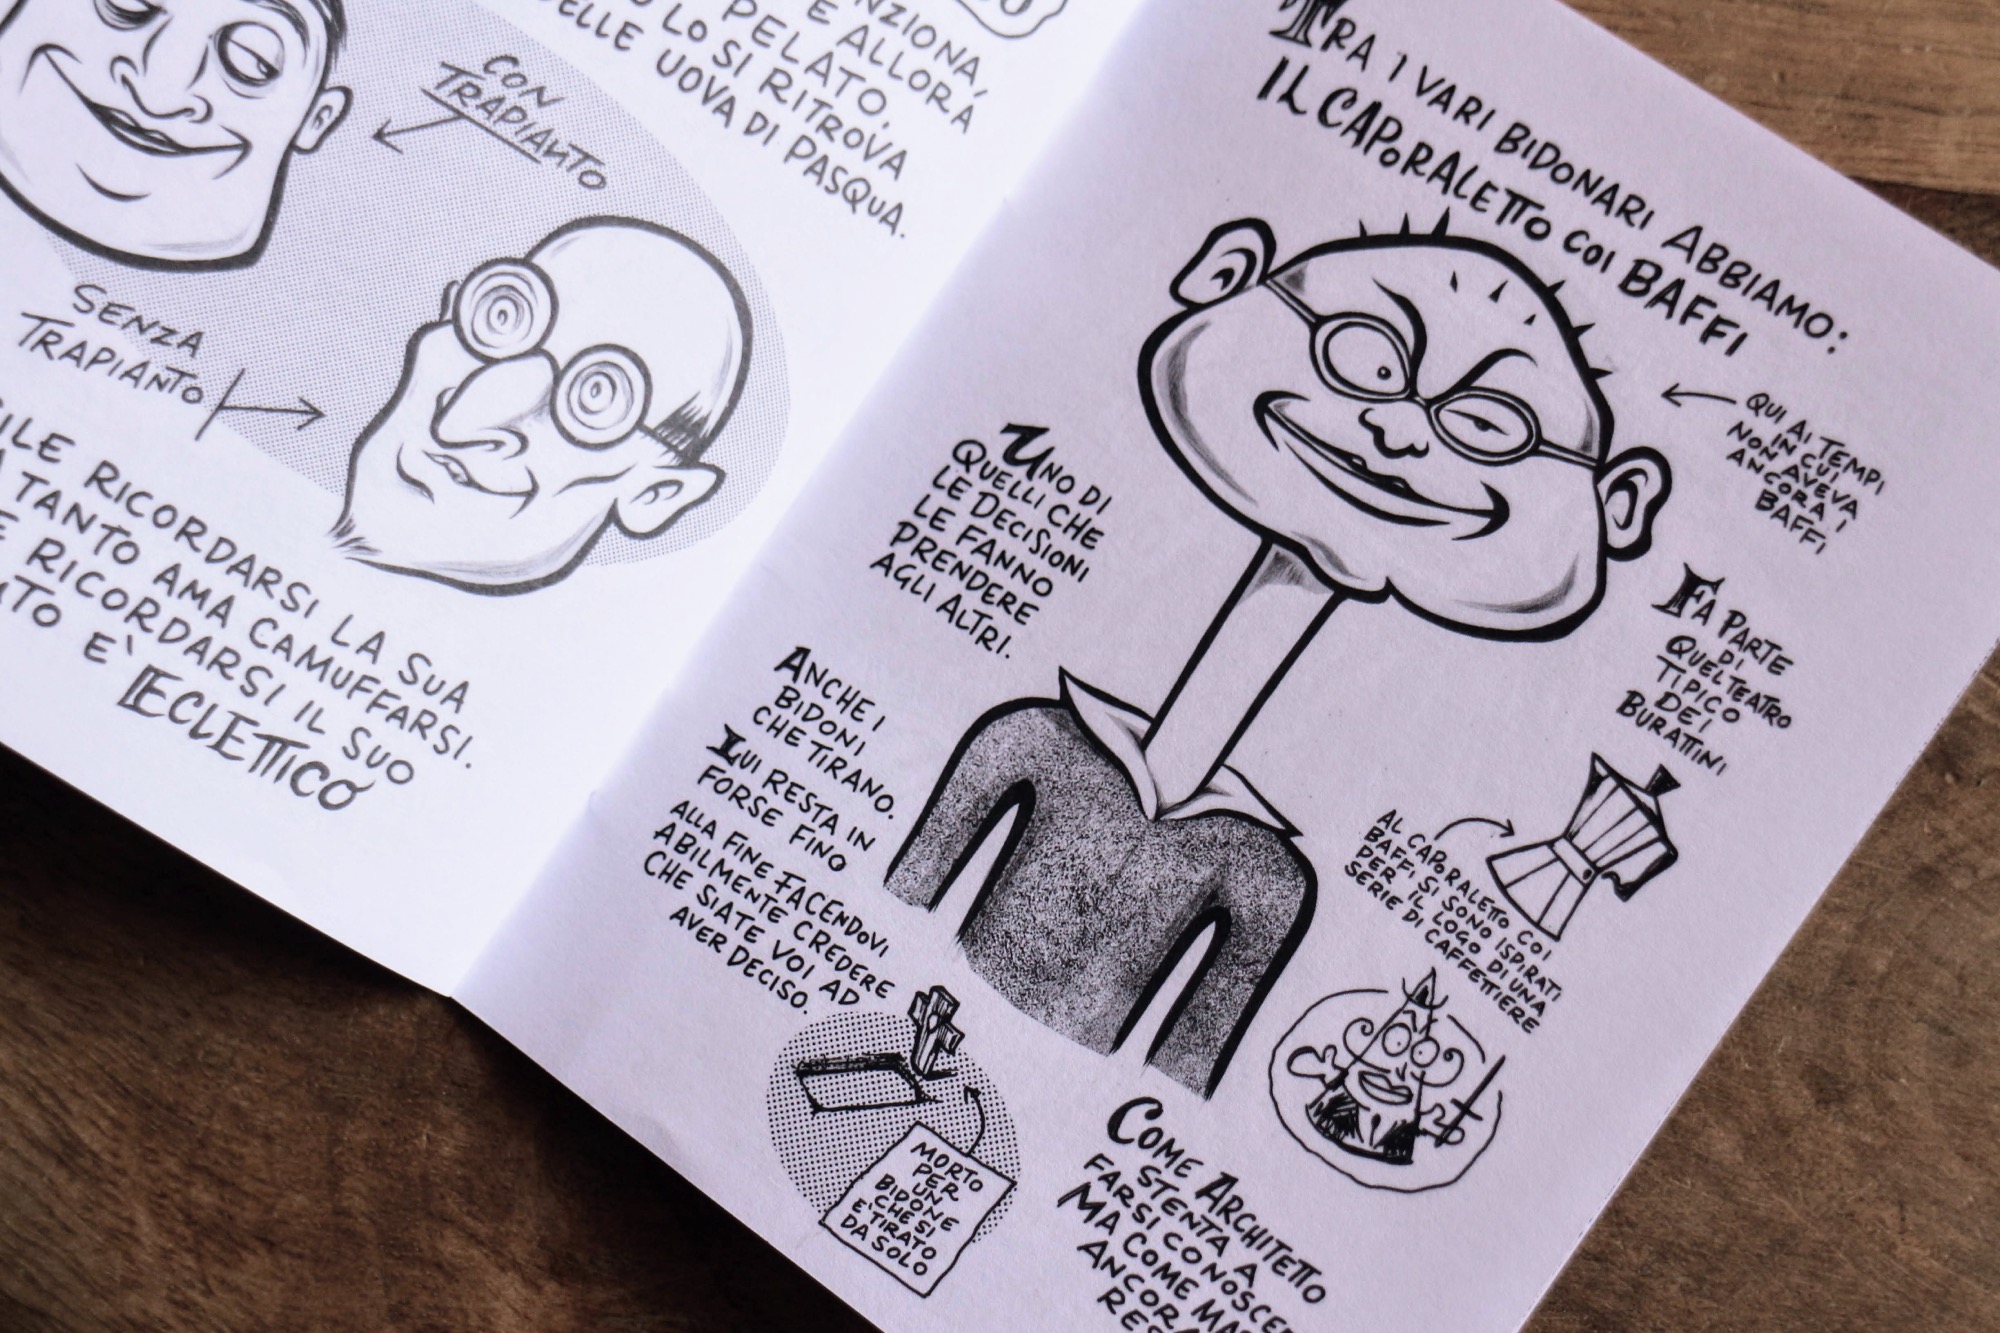 NZIONA,
E ALLORA
PELATO,
LO SI RITROVA
DELLE UOVA DI PASQUA.
CON
TRAPIANTO
SENZA
TRAPIANTO
RICORDARSI LA SUA
TANTO AMA CAMUFFARSI.
RICORDARSI IL SUO
E'
ECLETTICO
TRA I VARI BIDONARI ABBIAMO:
IL CAPORALETTO COI BAFFI
QUI AI TEMPI
IN CUI
NON AVEVA
ANCORA I
BAFFI
UNO DI
QUELLI CHE
LE DECISIONI
LE FANNO
PRENDERE
AGLI ALTRI.
FA PARTE
DI
QUEL TEATRO
TIPICO
DEI
BURATTINI
ANCHE I
BIDONI
CHE TIRANO.
LUI RESTA IN
FORSE FINO
ALLA FINE FACENDOVI
ABILMENTE CREDERE
CHE SIATE VOI AD
AVER DECISO.
AL CAPORALETTO COI
BAFFI SI SONO ISPIRATI
PER IL LOGO DI UNA
SERIE DI CAFFETTIERE
MORTO
PER
UN
BIDONE
CHE SI
E' TIRATO
DA SOLO
COME ARCHITETTO
STENTA A
FARSI CONOSCE
MA COME MA
ANCOR
RES